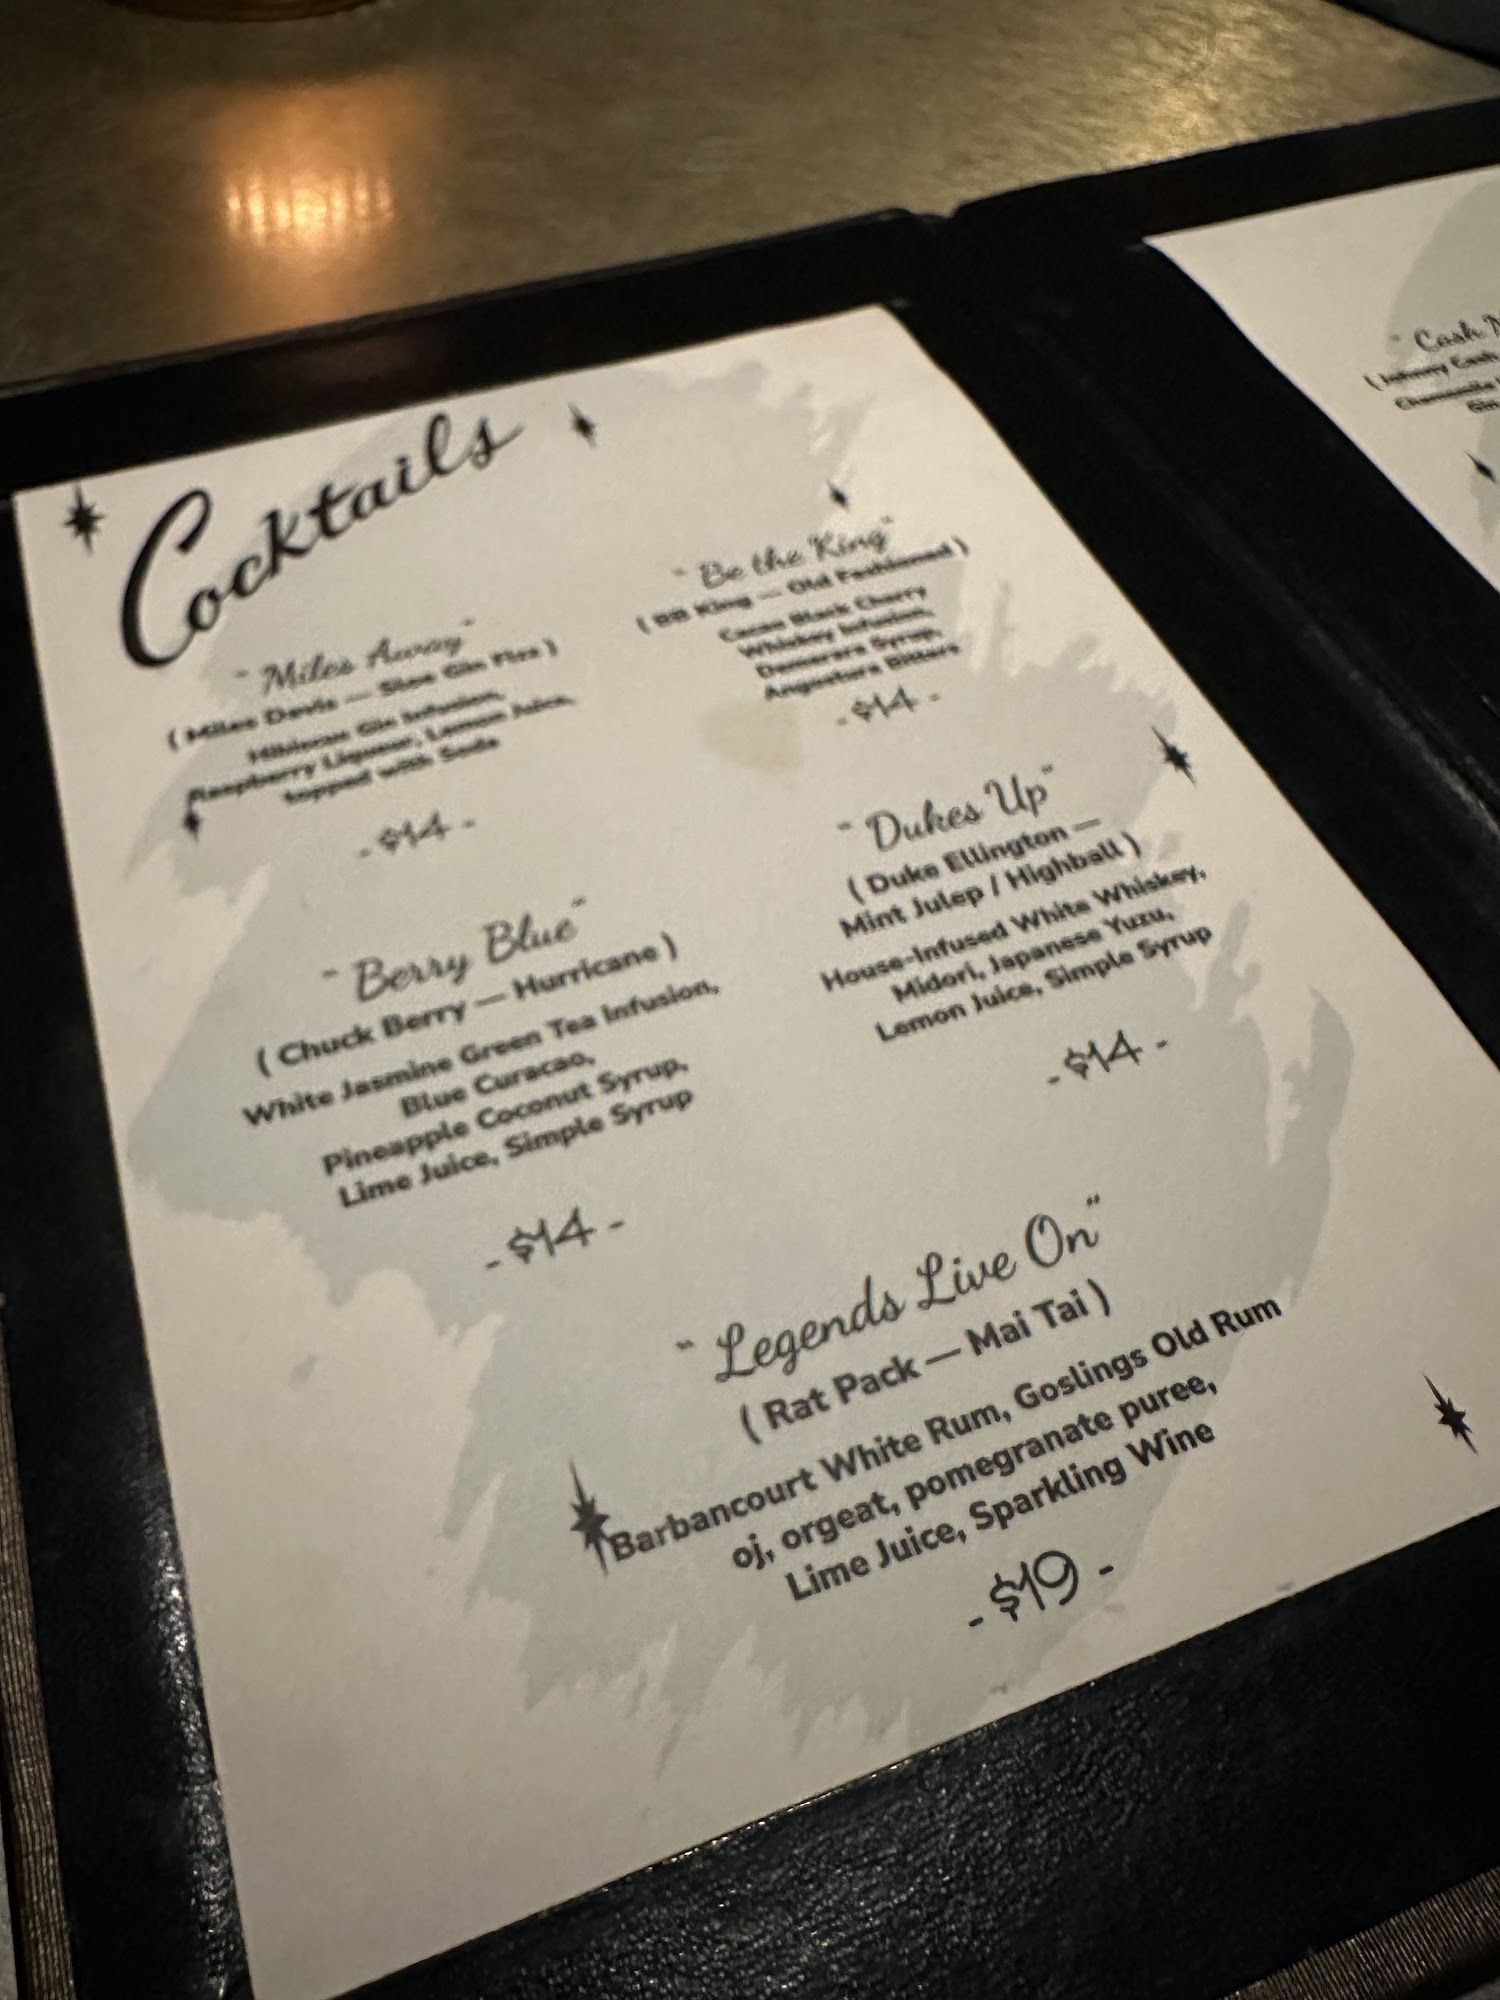 Cocktails
"Miles Away"
( Miles Davis — Sloe Gin Fizz )
Hibiscus Gin Infusion,
Raspberry Liqueur, Lemon Juice,
topped with Soda
- $14 -
"Be the King"
( BB King — Old Fashioned )
Cacao Black Cherry
Whiskey Infusion,
Demerara Syrup,
Angostura Bitters
- $14 -
"Berry Blue"
( Chuck Berry — Hurricane )
White Jasmine Green Tea Infusion,
Blue Curacao,
Pineapple Coconut Syrup,
Lime Juice, Simple Syrup
- $14 -
"Dukes Up"
( Duke Ellington —
Mint Julep / Highball )
House-Infused White Whiskey,
Midori, Japanese Yuzu,
Lemon Juice, Simple Syrup
- $14 -
"Legends Live On"
( Rat Pack — Mai Tai )
Barbancourt White Rum, Goslings Old Rum
oj, orgeat, pomegranate puree,
Lime Juice, Sparkling Wine
- $19 -
"Cash
( Johnny Cash
Chamomile